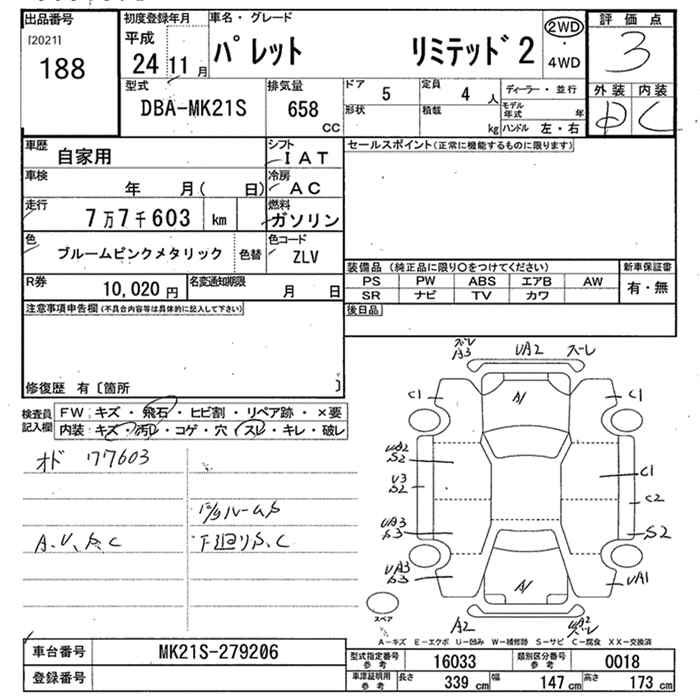 出品番号
[2021]
188
初度登録年月
平成
24 11 月
車名・グレード
パレット リミテッド2
2WD
・
4WD
評価点
3
外装 内装
D C
型式
DBA-MK21S
排気量
658
CC
ドア 5
定員 4 人
形状
積載 kg
ディーラー・並行
モデル年式 年
ハンドル 左・右
車歴
自家用
シフト
IAT
車検
年 月( 日)
冷房
AC
走行
7万7千603 km
燃料
ガソリン
色
ブルームピンクメタリック
色替
色コード
ZLV
R券
10,020 円
名変通知期限
月 日
セールスポイント(正常に機能するものに限ります)
装備品 (純正品に限り〇をつけてください)
PS PW ABS エアB AW
SR ナビ TV カワ
新車保証書
有・無
後日品
注意事項申告欄(不具合内容等は具体的に記入して下さい)
修復歴 有〔箇所 〕
検査員
記入欄
FW キズ・飛石・ヒビ割・リペア跡・×要
内装 キズ・汚レ・コゲ・穴・スレ・キレ・破レ
オド 77603
A.V.S.C
下廻りS.C
ズーレ
A3
UA2
ズーレ
A1
C1
C1
UA2
S2
U3
S2
C1
C2
UA3
S3
S2
UA3
S3
A1
UA1
A2
UA2
ズーレ
スペア
A-キズ E-エクボ U-凹み W-補修跡 S-サビ C-腐食 XX-交換済
車台番号
MK21S-279206
登録番号
型式指定番号
参考
16033
類別区分番号
参考
0018
車庫証明用
参考
長さ 339 cm
幅 147 cm
高さ 173 cm